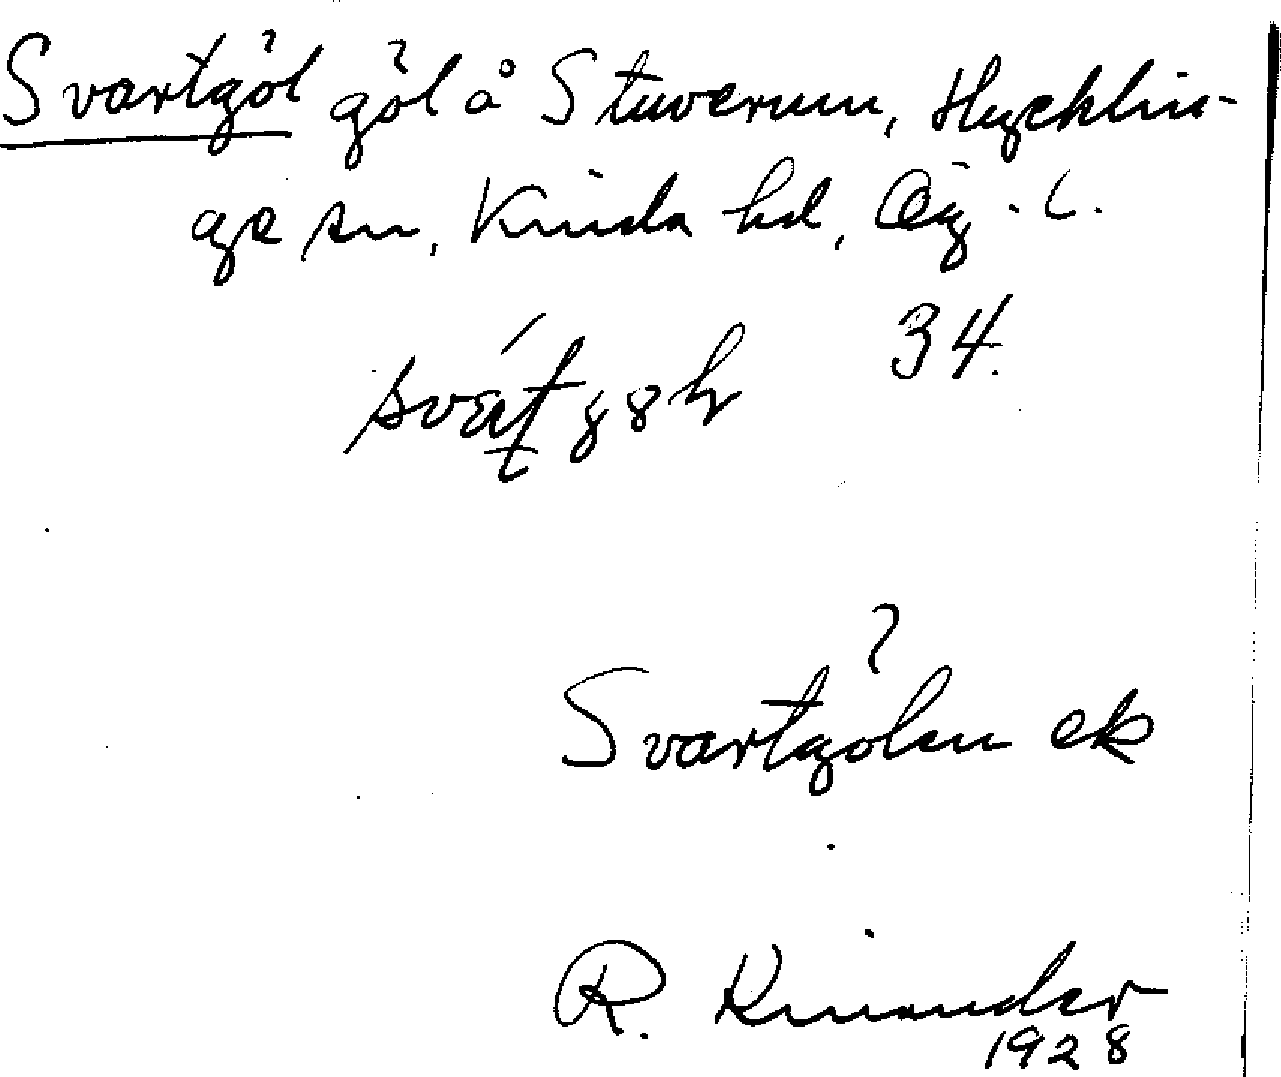 Svartgöl göl å Stuverum, Hycklin-
ge sn, Kinda hd, Ög. l.
34.
Svartgölen ek
R. Kinander
1928